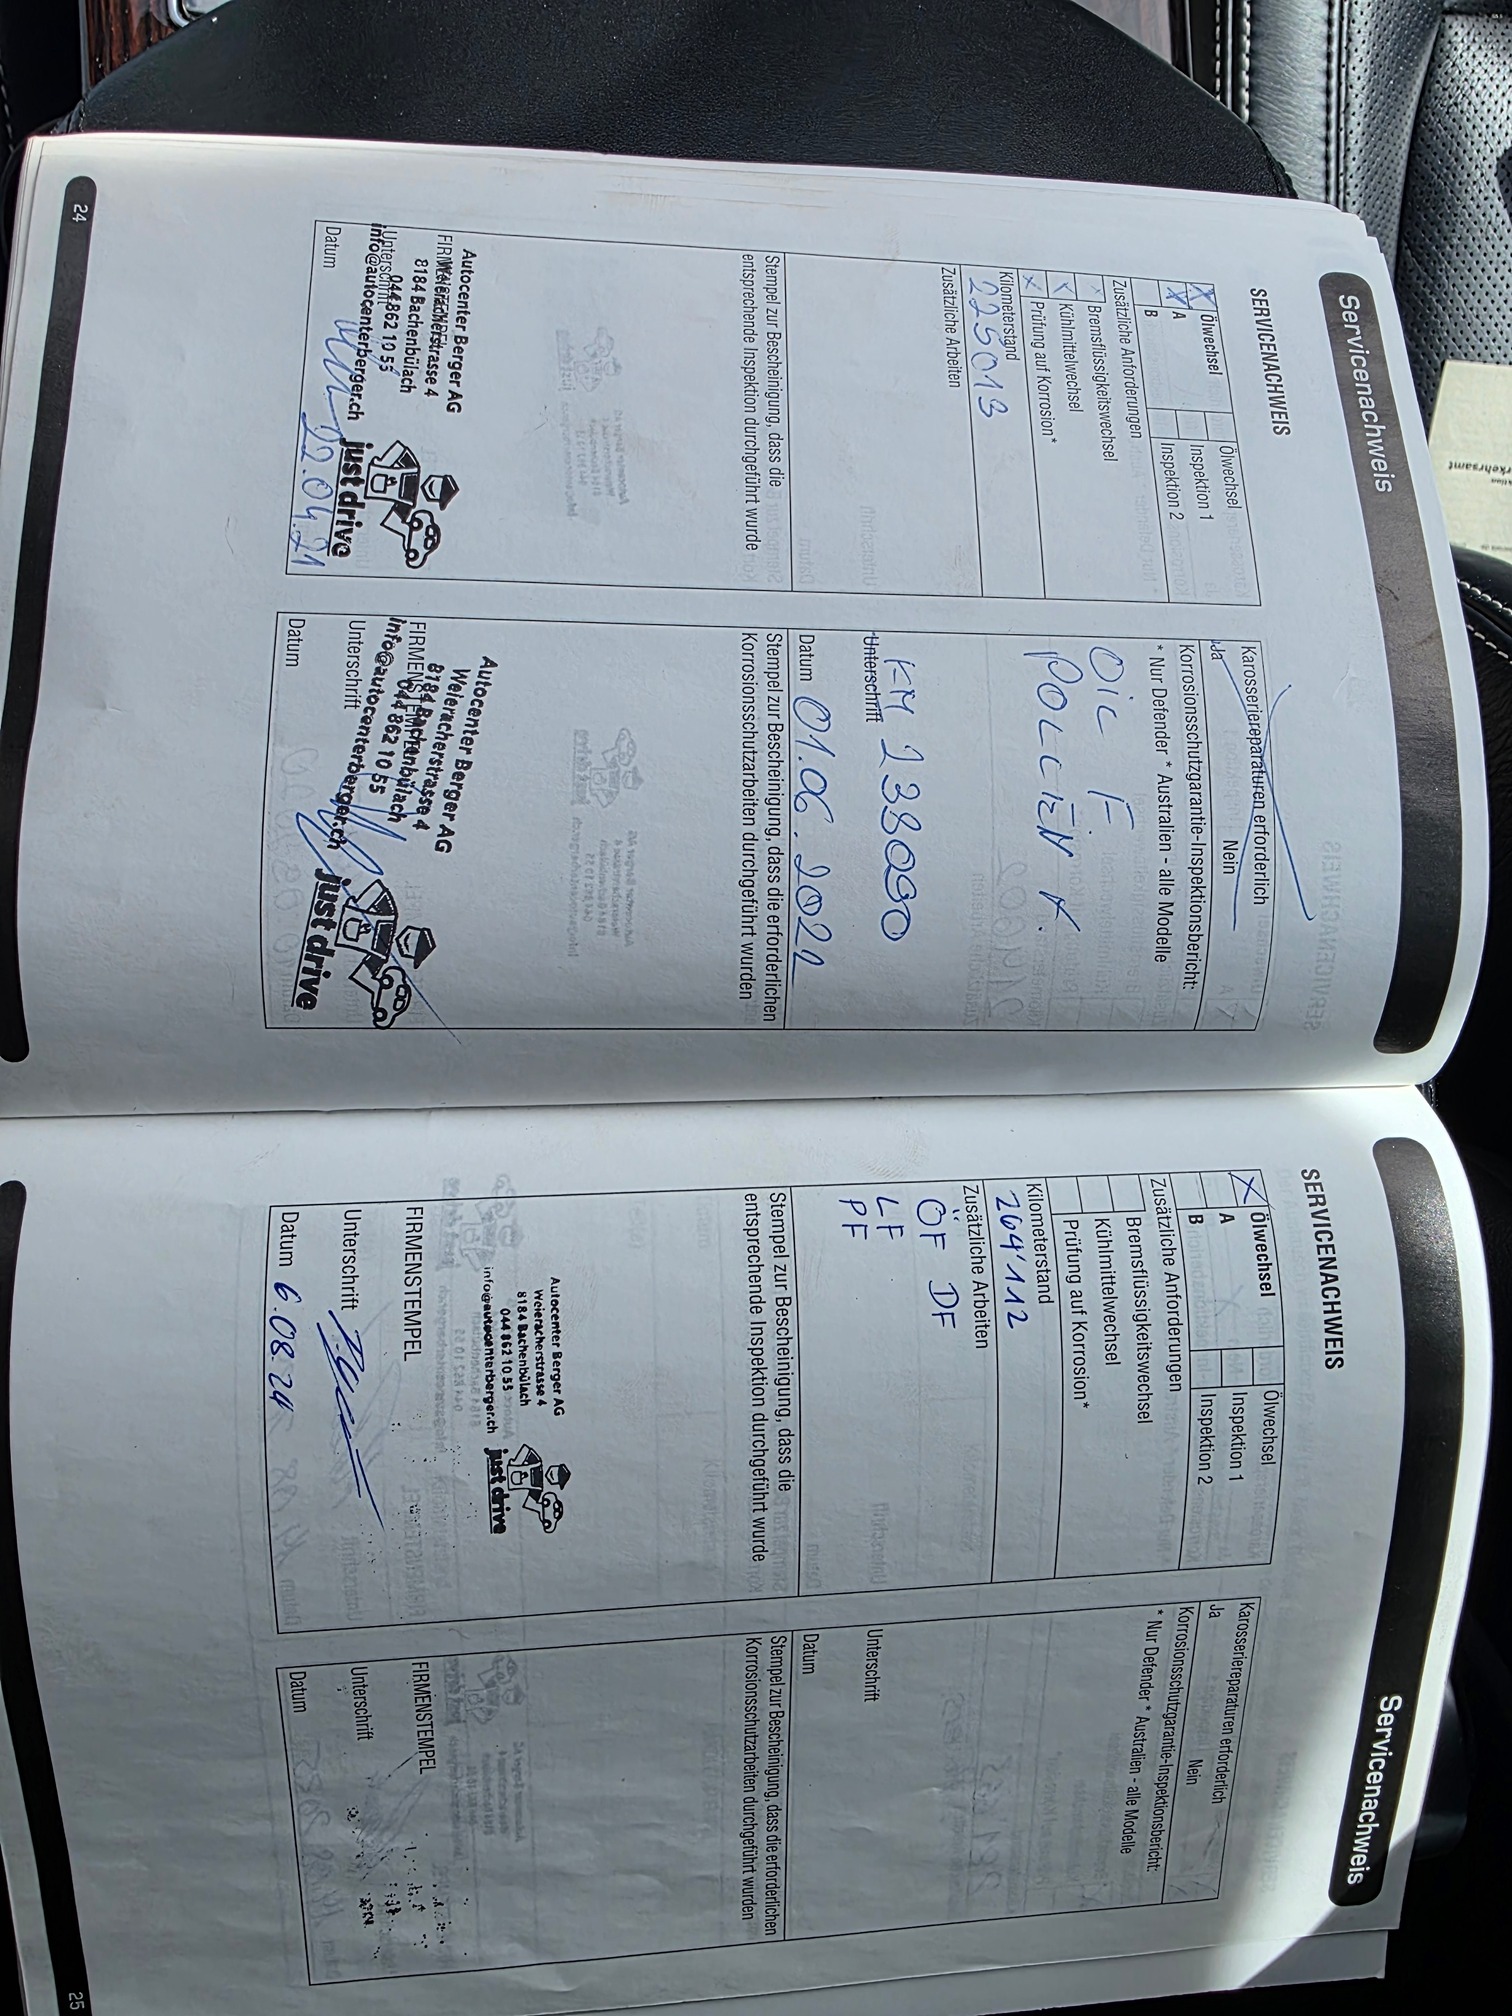 Servicenachweis
SERVICENACHWEIS
X Ölwechsel
Ölwechsel
X A
Inspektion 1
B
Inspektion 2
Zusätzliche Anforderungen
x Bremsflüssigkeitswechsel
x Kühlmittelwechsel
x Prüfung auf Korrosion*
Kilometerstand
225013
Zusätzliche Arbeiten
Stempel zur Bescheinigung, dass die
entsprechende Inspektion durchgeführt wurde
Autocenter Berger AG
Weieracherstrasse 4
8184 Bachenbülach
044 862 10 55
info@autocenterberger.ch
just drive
Unterschrift
Datum
22.04.21
24
Karosseriereparaturen erforderlich
Ja Nein
Korrosionsschutzgarantie-Inspektionsbericht:
* Nur Defender * Australien - alle Modelle
OIL F.
KM
Unterschrift
Datum 01.06.2022
Stempel zur Bescheinigung, dass die erforderlichen
Korrosionsschutzarbeiten durchgeführt wurden
Autocenter Berger AG
Weieracherstrasse 4
8184 Bachenbülach
FIRMENSTEMPEL
044 862 10 55
info@autocenterberger.ch
just drive
Unterschrift
Datum
Servicenachweis
SERVICENACHWEIS
X Ölwechsel
Ölwechsel
A
Inspektion 1
B
Inspektion 2
Zusätzliche Anforderungen
Bremsflüssigkeitswechsel
Kühlmittelwechsel
Prüfung auf Korrosion*
Kilometerstand
264'112
Zusätzliche Arbeiten
ÖF DF
LF
PF
Stempel zur Bescheinigung, dass die
entsprechende Inspektion durchgeführt wurde
Autocenter Berger AG
Weieracherstrasse 4
8184 Bachenbülach
044 862 10 55
info@autocenterberger.ch
just drive
FIRMENSTEMPEL
Unterschrift
Datum 6.08.24
Karosseriereparaturen erforderlich
Ja Nein
Korrosionsschutzgarantie-Inspektionsbericht:
* Nur Defender * Australien - alle Modelle
Unterschrift
Datum
Stempel zur Bescheinigung, dass die erforderlichen
Korrosionsschutzarbeiten durchgeführt wurden
FIRMENSTEMPEL
Unterschrift
Datum
25